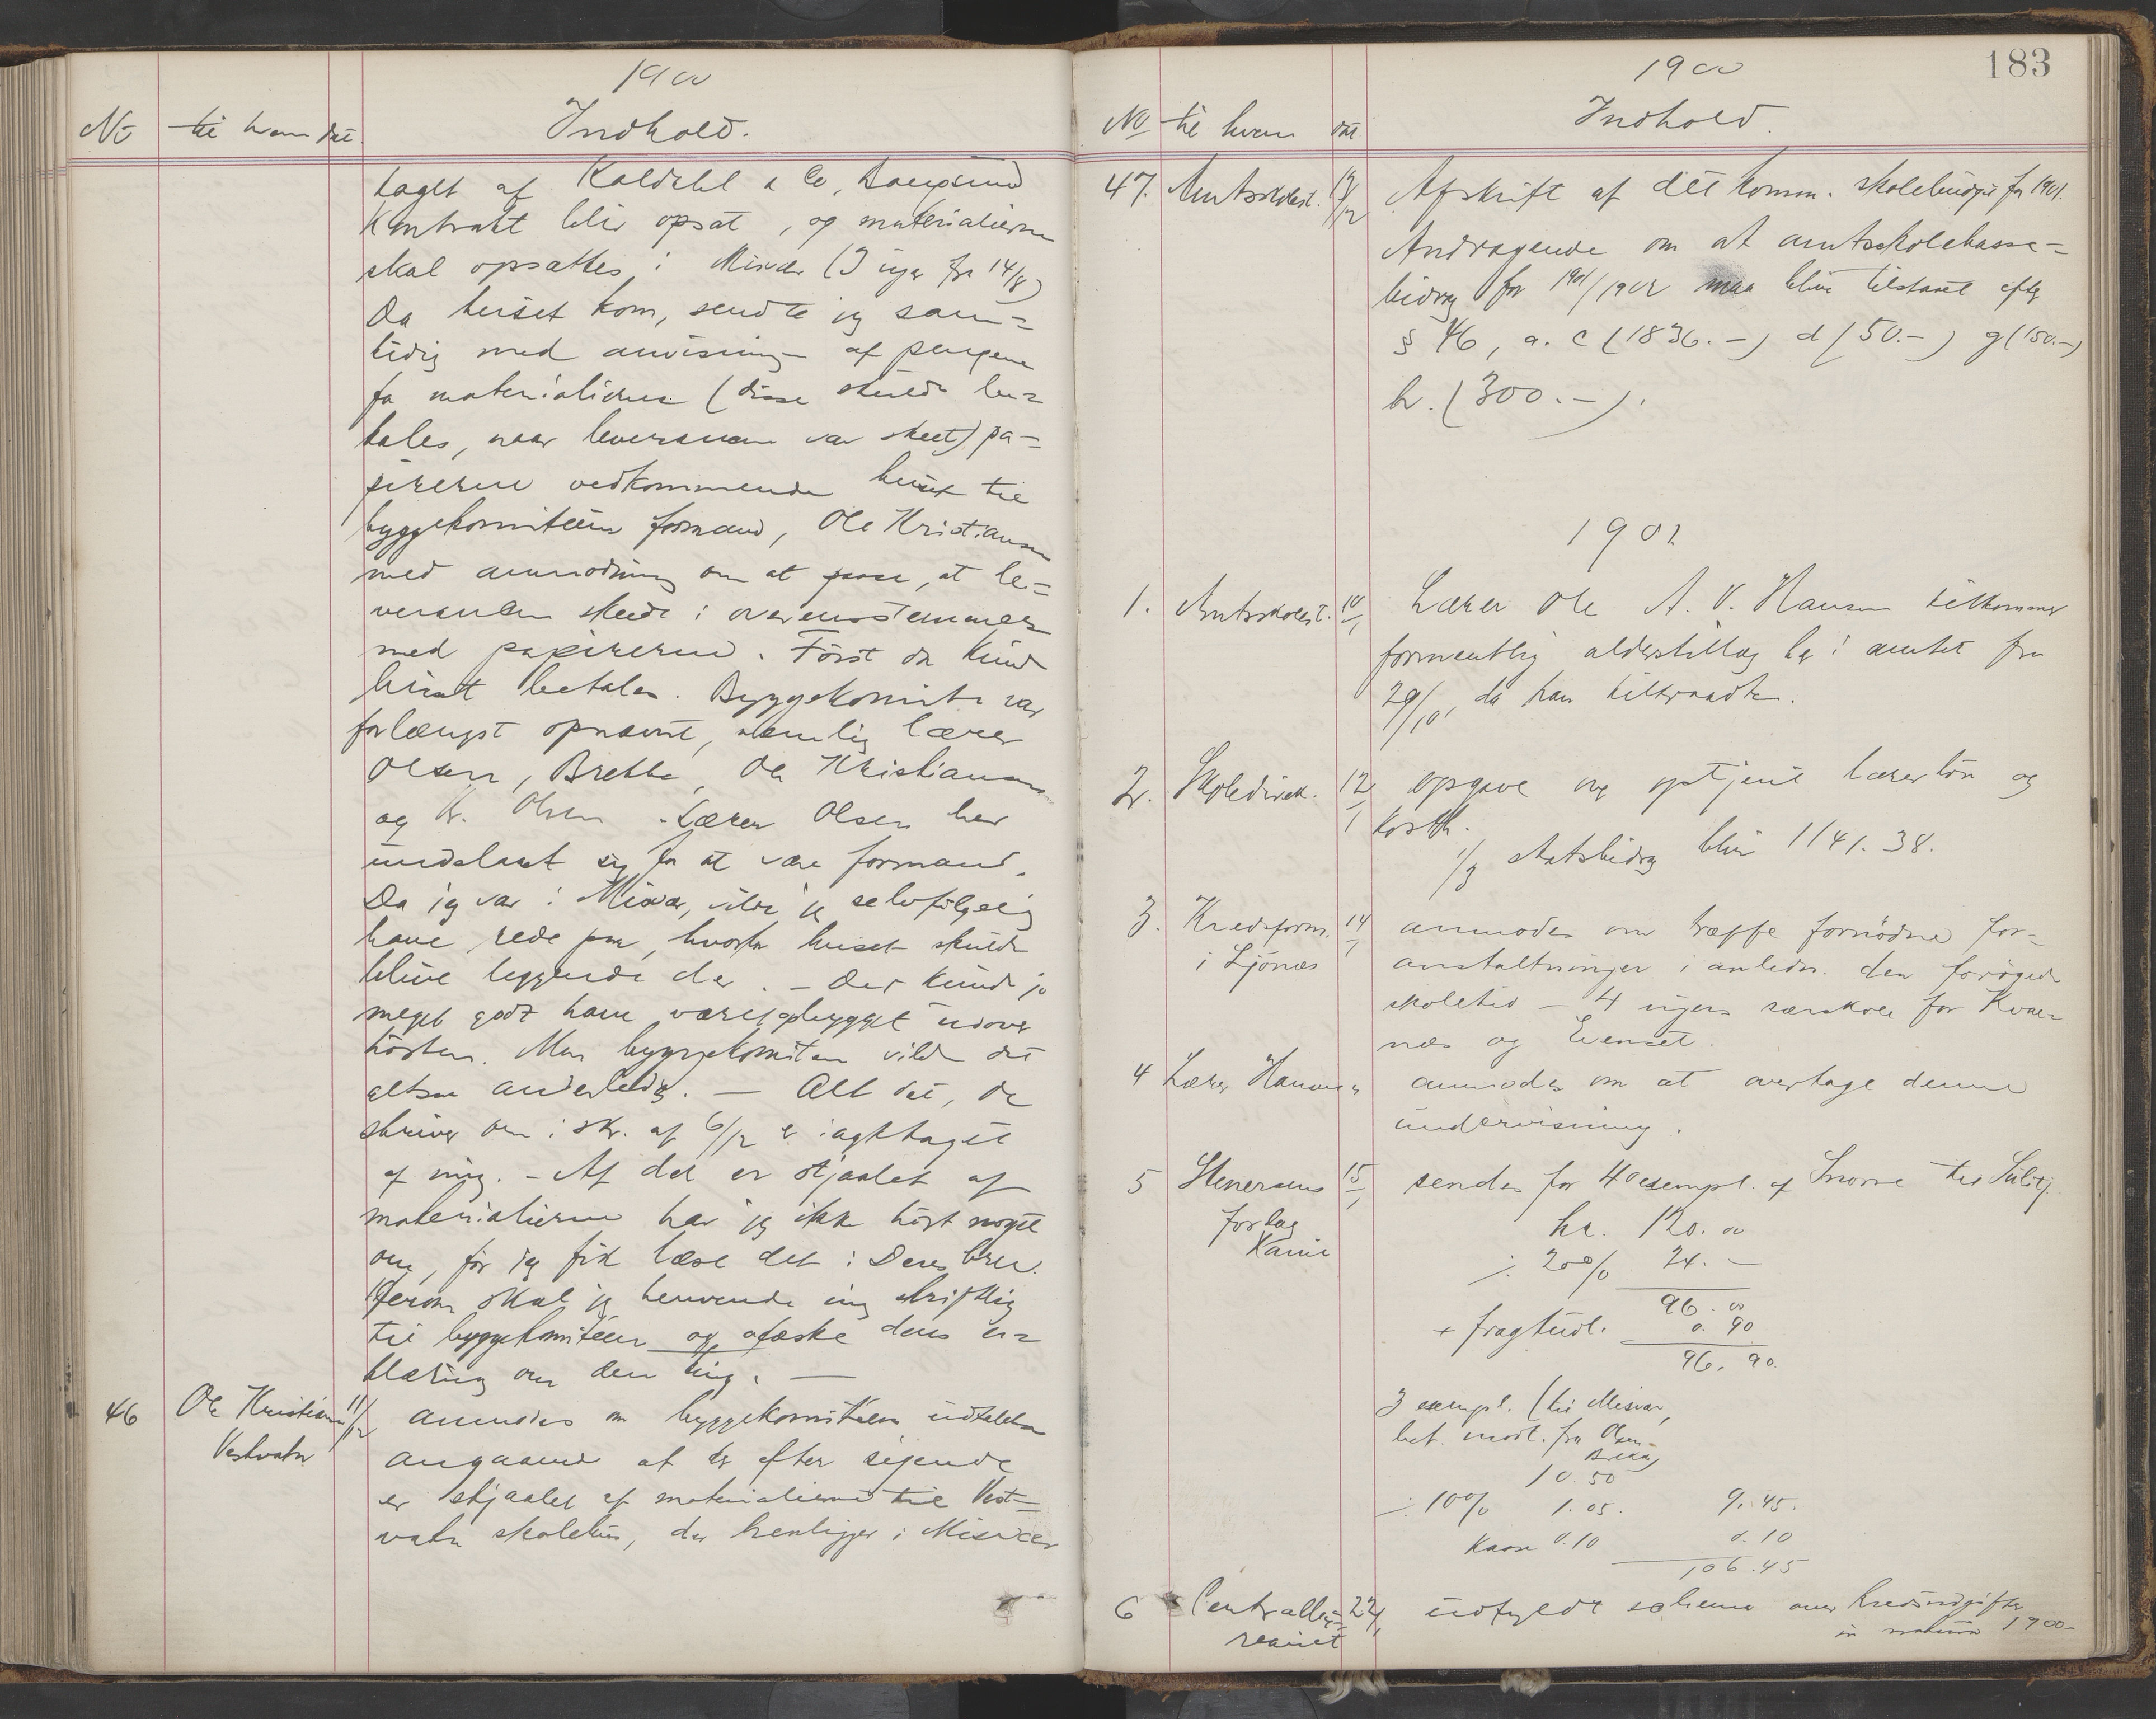 1900
No til hvem dat. Indhold.
taget af Koldahl & Co, Bangsund
Kontrakt blir opsat, og materialierne
skal opsættes i Misvær (3 uger fra 14/8)
Da huset kom, sendte jeg sam=
tidig med anvisning af pengene
for materialierne (disse skulde be=
tales, naar leverancen var skeet) pa=
pirerne vedkommende huset til
byggekomiteens formand, Ole Kristiansen
med anmodning om at passe, at le=
verancen skede i overensstemmelse
med papirerne. Först da kunde
huset betales. Byggekomite var
forlængst opnævnt, nemlig lærer
Olsen, Brekke, Ole Kristiansen
og Kr. Olsen. Lærer Olsen har
undslaat sig for at være formand.
Da jeg var i Misvær, vilde jeg selvfölgelig
have rede paa, hvorfor huset skulde
blive liggende der. – Det kunde jo
meget godt have været paabygget udover
hösten. Men byggekomiteen vilde det
altsaa anderledes. — Alt det, De
skriver om i skr. af 6/12 er iagttaget
af mig. – At det er stjaalet af
materialierne har jeg ikke hört noget
om, för jeg fik læse det i Deres brev.
Herom skal jeg henvende mig skriftlig
til byggekomiteen og afæske dens er=
klæring om den ting. —
46 Ole Kristiansen 11/12 anmodes om byggekomiteens udtalelse
Vestvatn angaaende at der efter sigende
er stjaalet af materialierne til Vest=
vatn skolehus, der henligger i Misvær
1900 183
No til hvem dat. Indhold.
47. Amtsskolest. 17/12 Afskrift af det komm. skolebudget for 1901.
Andragende om at amtsskolekasse=
bidrag for 1901/1902 maa blive tilstaaet efter
§ 46, a. c (1836.–) d (50.–) g (150.–)
h. (300.–).
1901
1. Amtsskolest. 10/1 Lærer Ole A. V. Hansen tilkommer
formentlig alderstillæg her i amtet fra
29/10, da han tiltraadte.
2. Skoledirek. 12/1 Opgave over optjent lærerlön og
kosth.
1/3 statsbidrag blir 1141.38.
3. Kredsform. 14/1 anmodes om træffe fornödne for=
i Ljönes anstaltninger i anledn. den forögede
skoletid – 4 ugers særskole for Kvæ=
nes og Evenset.
4 Lærer Hansen " anmodes om at overtage denne
undervisning.
5 Stenersens 15/1 sendes for 40 exempl. af Snorre til Sulitj.
forlag kr. 120.00
Kania ÷ 20% 24.—
96.00
+ fragtudl. 0.90
96.90
3 exempl. (til Misvær,
bet. modt. fra Olsen
Brekke)
10.50
÷ 10% 1.05. 9.45.
Kasse 0.10 0.10
106.45
6 Centralby= 22/1 udfyldt schema over kredsudgifter
reauet in natura 1900–